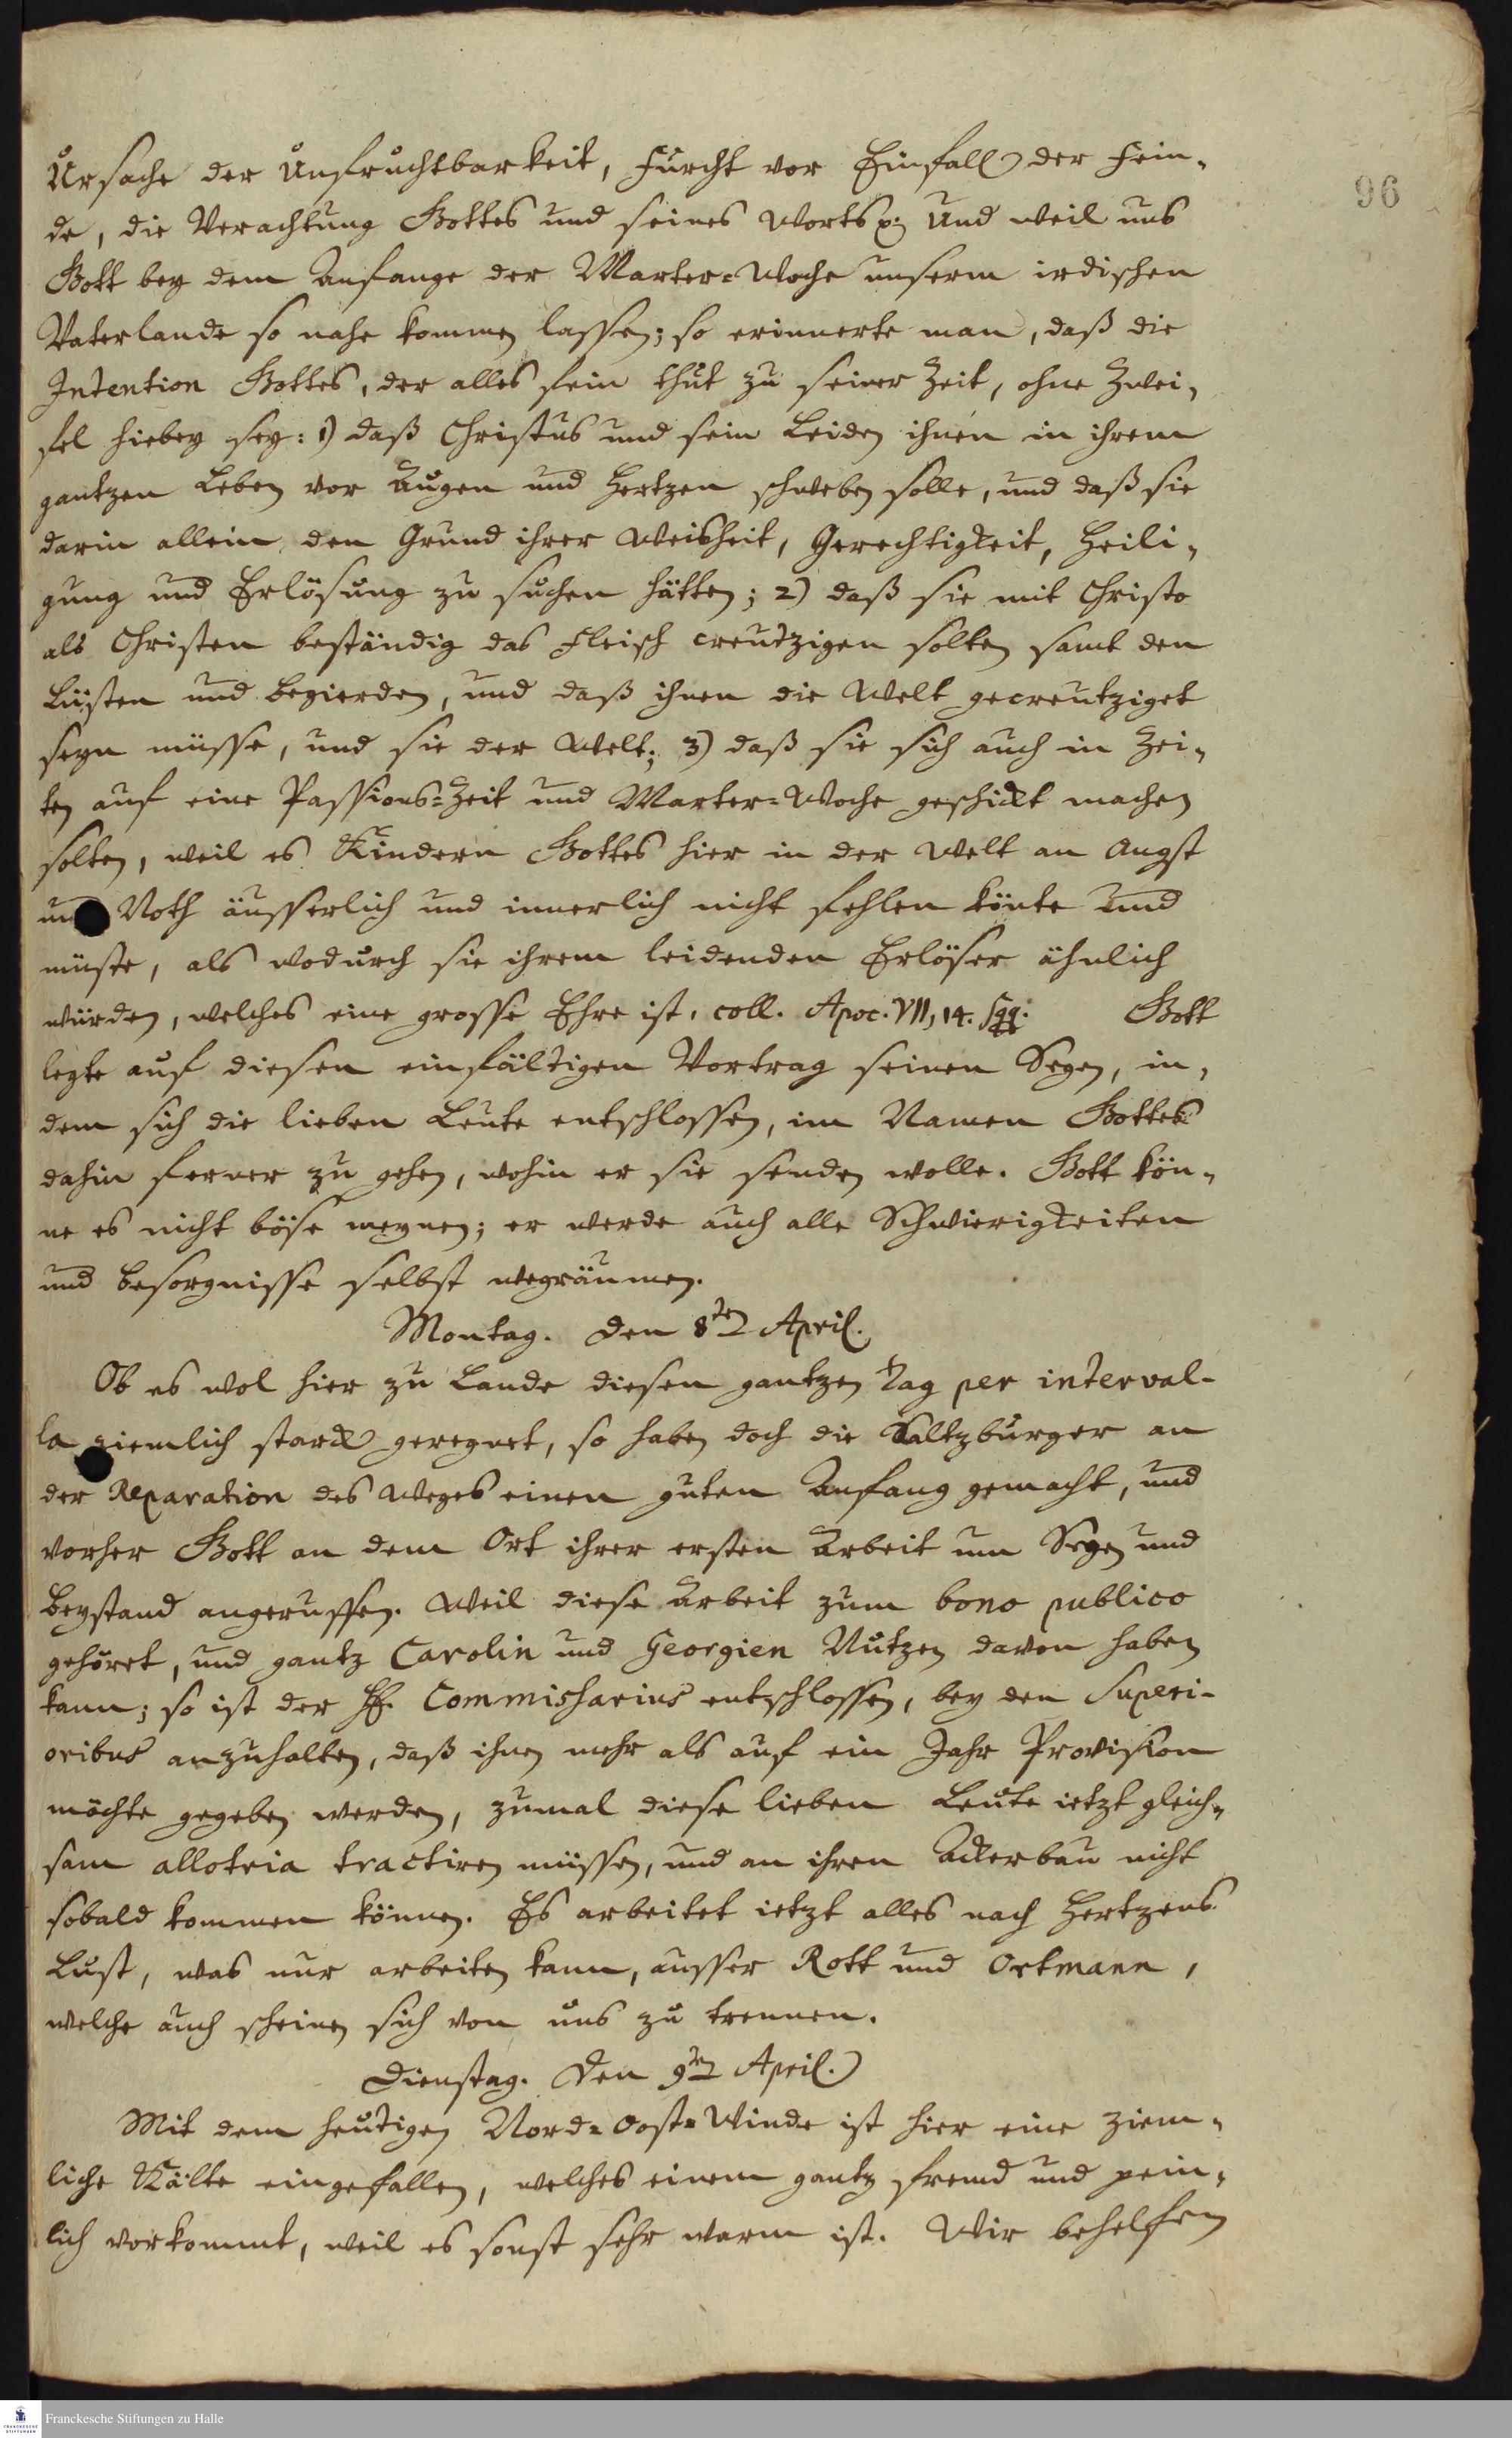 96
Ursache der Unfruchtbarkeit, Furcht vor Einfall der Fein-
de, die Verachtung Gottes und seines Worts p. Und weil uns
Gott bey dem Anfange der Marter-Woche unserm irdischen
Vaterlande so nahe kommen lassen; so erinnerte man, daß die
Intention Gottes, der alles fein thut zu seiner Zeit, ohne Zwei-
fel hiebey sey: 1) daß Christus und sein Leiden ihnen in ihrem
gantzen Leben vor Augen und Hertzen schweben solle, und daß sie
darin allein den Grund ihrer Weisheit, Gerechtigkeit, Heili-
gung und Erlösung zu suchen hätten; 2) daß sie mit Christo
als Christen beständig das Fleisch creutzigen solten samt den
Lüsten und Begierden, und daß ihnen die Welt gecreutziget
seyn müsse, und sie der Welt; 3) daß sie sich auch in Zei-
ten auf eine Passions-Zeit und Marter-Woche geschickt machen
solten, weil es Kindern Gottes hier in der Welt an Angst
und Noth äusserlich und innerlich nicht fehlen könte und
müste, als wodurch sie ihrem leidenden Erlöser ähnlich
würden, welches eine grosse Ehre ist. coll. Apoc. VII, 14. sqq. Gott
legte auf diesen einfältigen Vortrag seinen Segen, in-
dem sich die lieben Leute entschlossen, im Namen Gottes
dahin ferner zu gehen, wohin er sie senden wolle. Gott kön-
ne es nicht böse meynen; er werde auch alle Schwierigkeiten
und Besorgnisse selbst wegräumen.
Montag. den 8ten April.
Ob es wol hier zu Lande diesen gantzen Tag per interval-
la ziemlich starck geregnet, so haben doch die Saltzburger an
der Reparation des Weges einen guten Anfang gemacht, und
vorher Gott an dem Ort ihrer ersten Arbeit um Segen und
Beystand angeruffen. Weil diese Arbeit zum bono publico
gehöret, und gantz Carolin und Georgien Nutzen davon haben
kann; so ist der H. Commissarius entschlossen, bey den Superi-
oribus anzuhalten, daß ihnen mehr als auf ein Jahr Provision
möchte gegeben werden, zumal diese lieben Leute ietzt gleich-
sam allotria tractiren müssen, und an ihren Ackerbau nicht
sobald kommen können. Es arbeitet ietzt alles nach Hertzens
Lust, was nur arbeiten kann, ausser Rott und Ortmann,
welche auch scheinen sich von uns zu trennen.
Dienstag. den 9ten April.
Mit dem heutigen Nord-Oost-Winde ist hier eine ziem-
liche Kälte eingefallen, welches einem gantz fremd und pein-
lich vorkommt, weil es sonst sehr warm ist. Wir behelfen
FRANCKESCHE STIFTUNGEN
Franckesche Stiftungen zu Halle